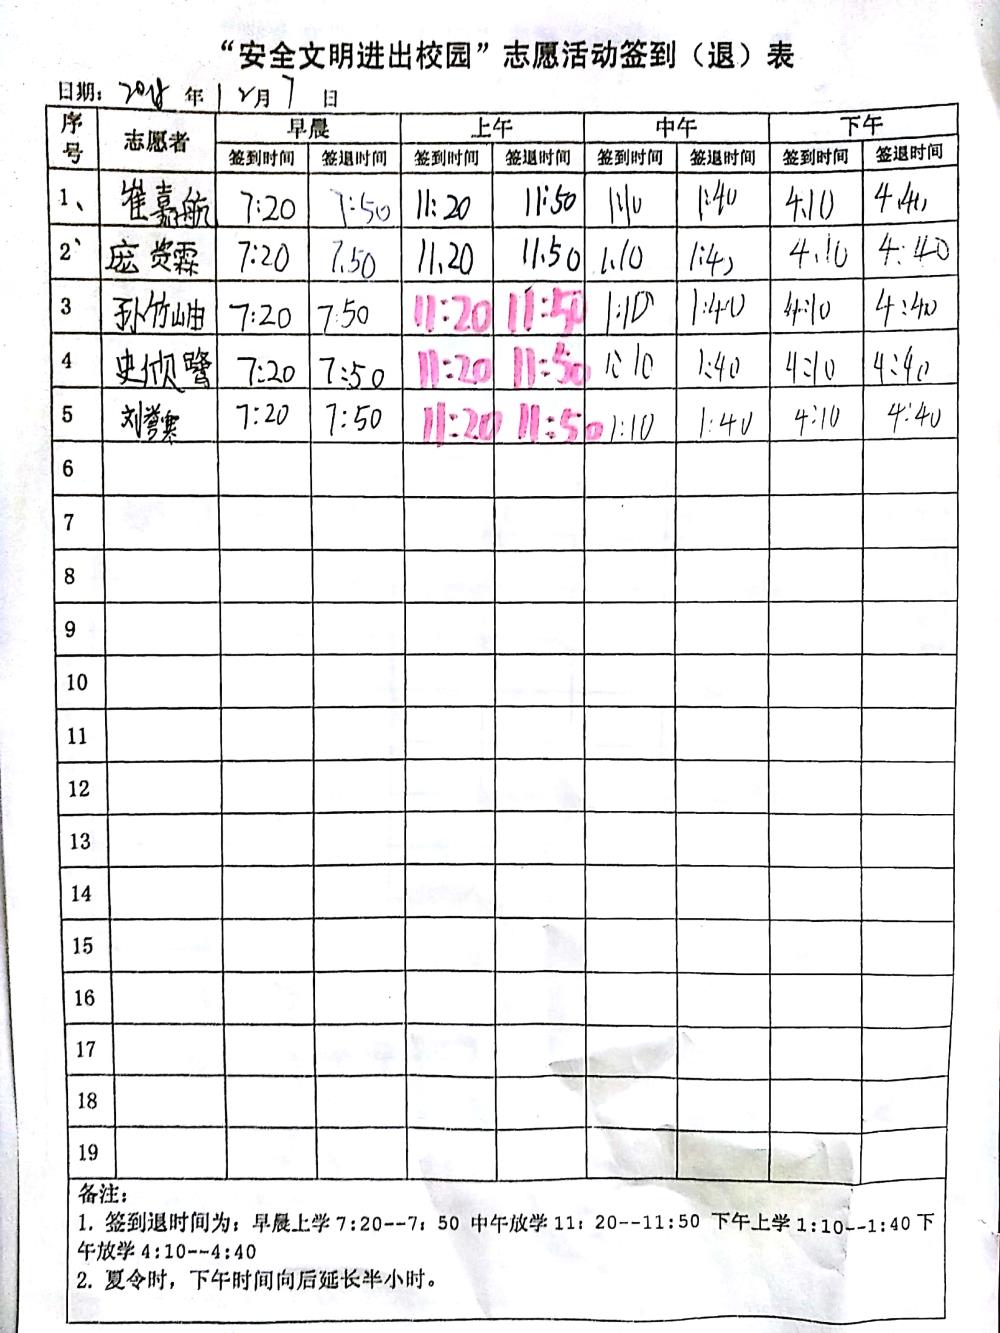 “安全文明进出校园”志愿活动签到（退）表
日期: 2018 年 12月 7 日
序号 志愿者 早晨 上午 中午 下午
签到时间 签退时间 签到时间 签退时间 签到时间 签退时间 签到时间 签退时间
1、 崔嘉航 7:20 7:50 11:20 11:50 1:10 1:40 4:10 4:40
2、 庞 霖 7:20 7.50 11.20 11.50 1.10 1:40 4.10 4:40
3 孙竹 7:20 7:50 11:20 11:50 1:10 1:40 4:10 4:40
4 史欣鹭 7:20 7:50 11:20 11:50 1:10 1:40 4:10 4:40
5 刘誉寒 7:20 7:50 11:20 11:50 1:10 1:40 4:10 4:40
6
7
8
9
10
11
12
13
14
15
16
17
18
19
备注:
1. 签到退时间为: 早晨上学7:20--7: 50 中午放学11: 20--11:50 下午上学1:10--1:40下
午放学4:10--4:40
2. 夏令时，下午时间向后延长半小时。